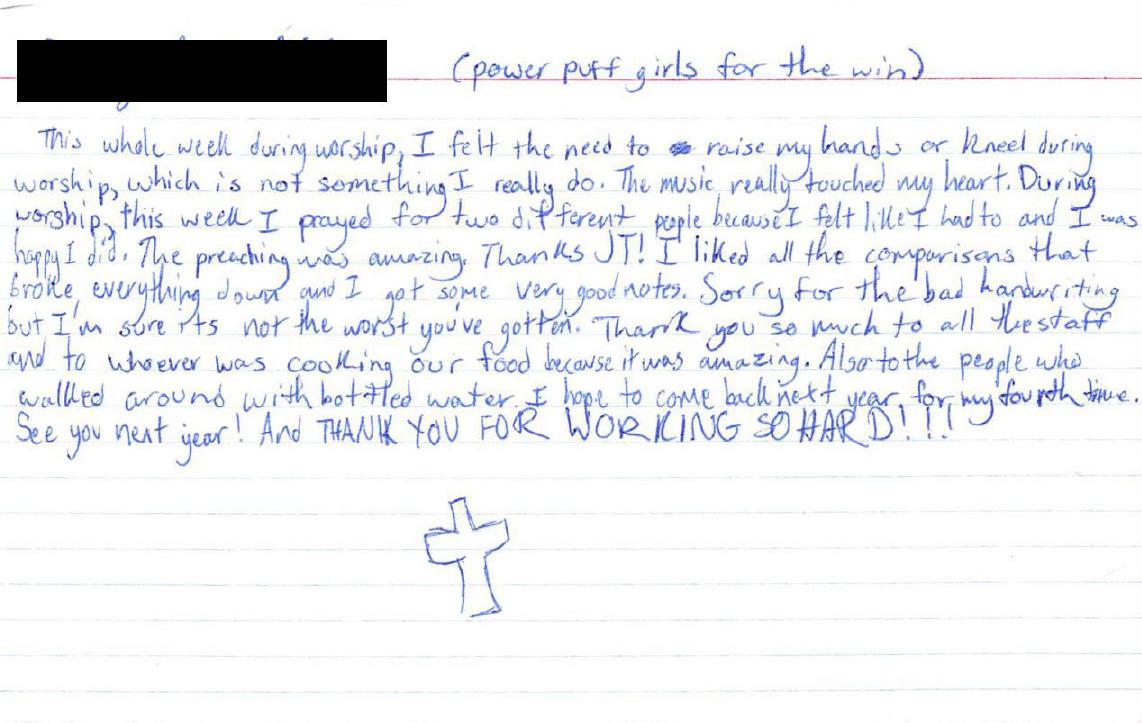 (power puff girls for the win)
This whole week during worship, I felt the need to raise my hands or kneel during
worship, which is not something I really do. The music really touched my heart. During
worship, this week I prayed for two different people because I felt like I had to and I was
happy I did. The preaching was amazing. Thanks JT! I liked all the comparisons that
broke everything down and I got some very good notes. Sorry for the bad handwriting
but I'm sure its not the worst you've gotten. Thank you so much to all the staff
and to whoever was cooking our food because it was amazing. Also to the people who
walked around with bottled water. I hope to come back next year for my fourth time.
See you next year! And THANK YOU FOR WORKING SO HARD!!!